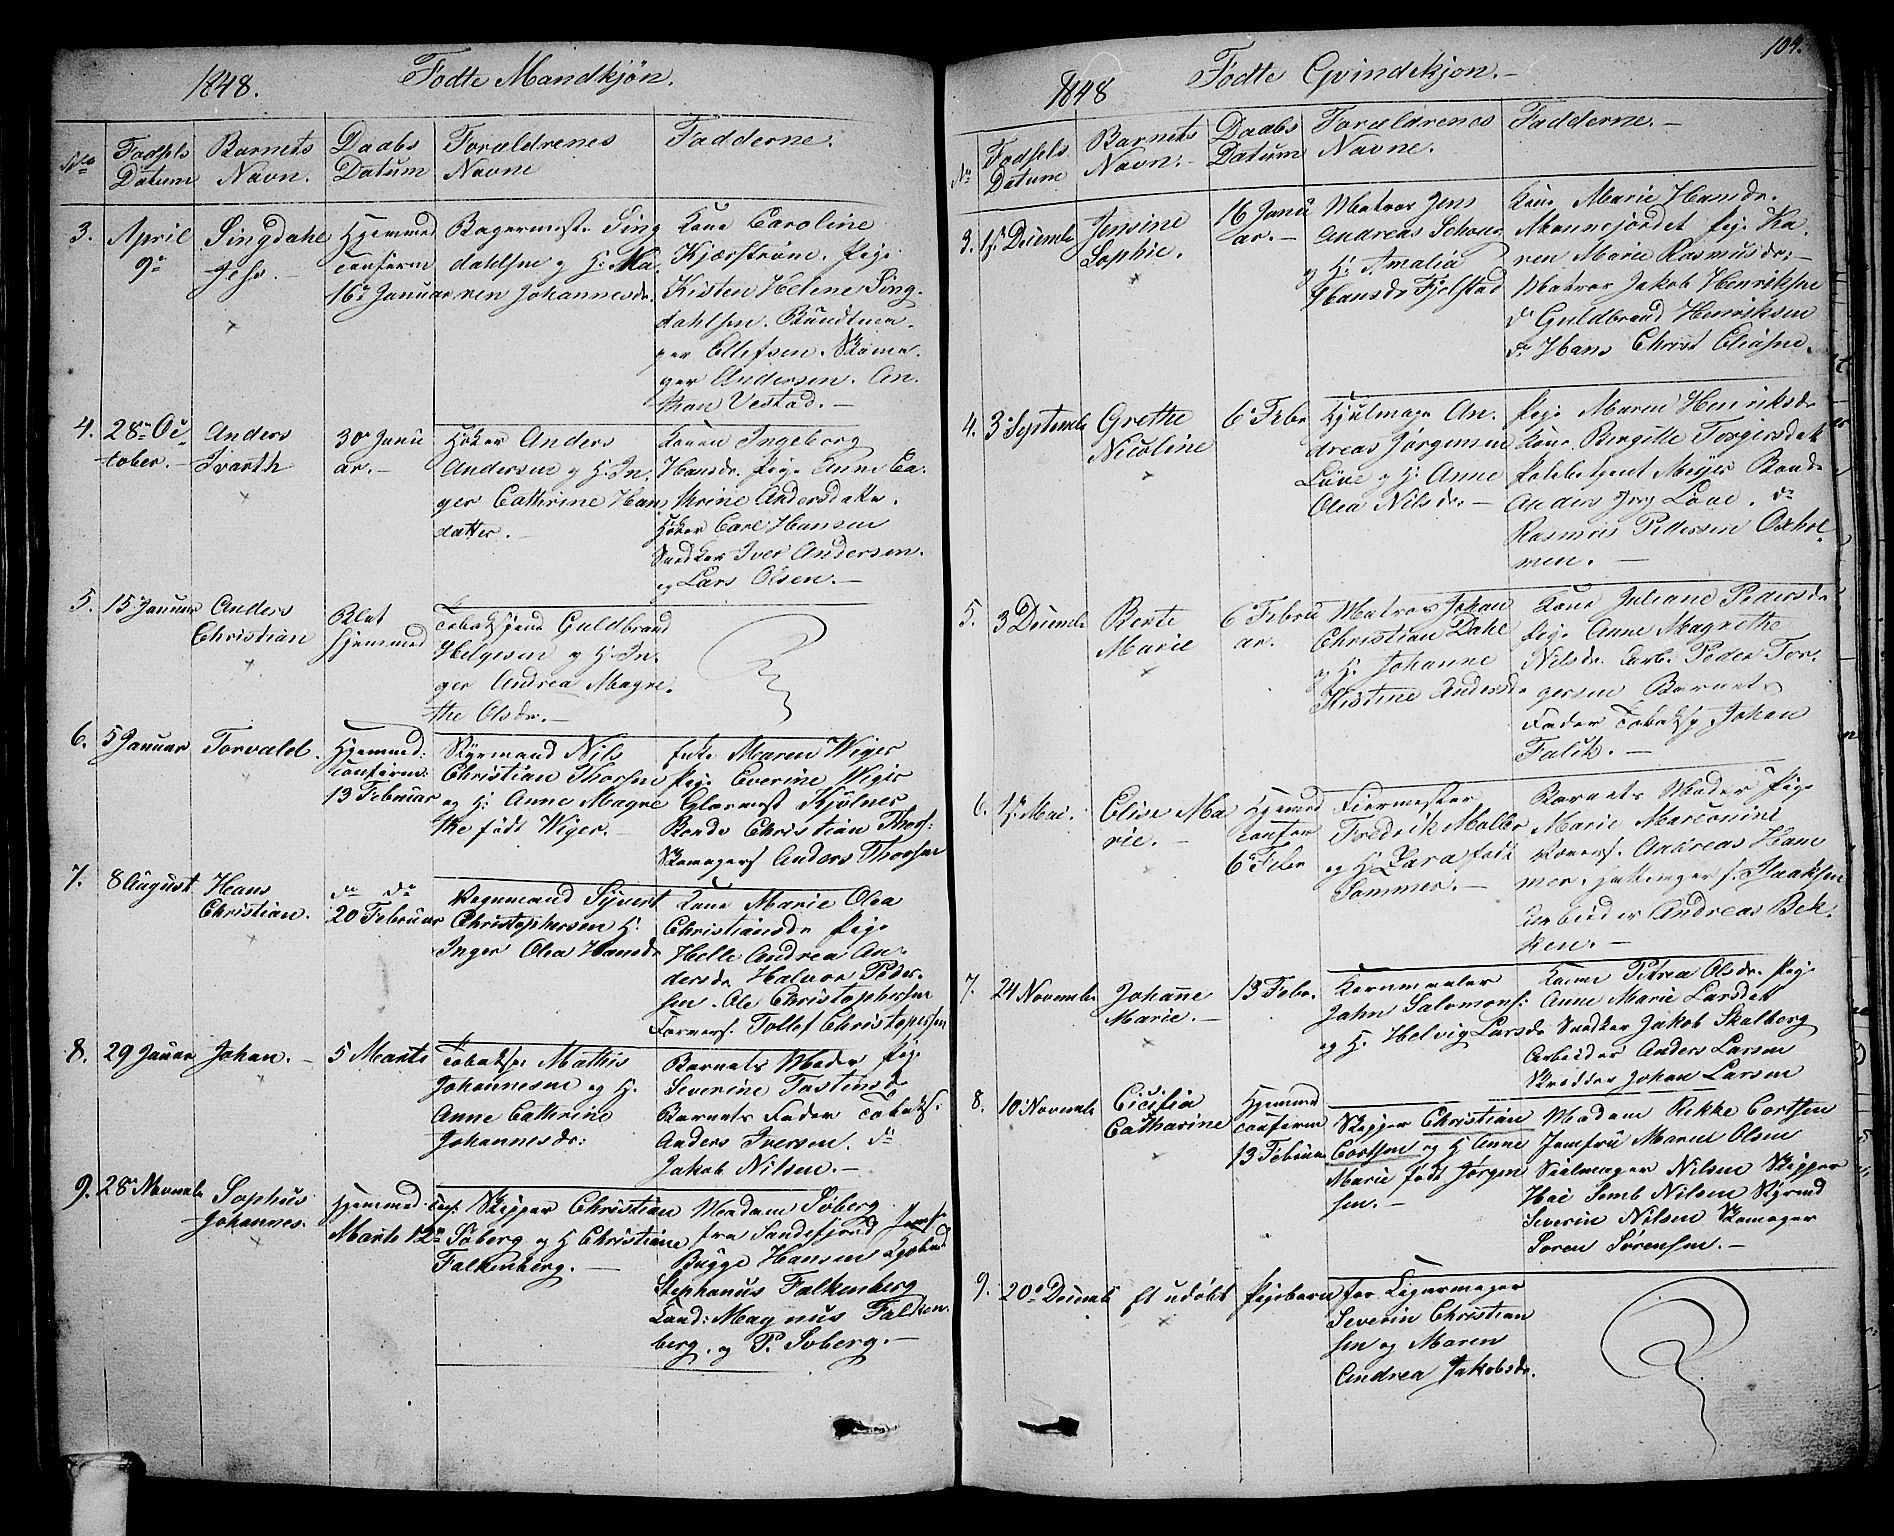 1848. Fødte Mandkjøn.
No Fødsels Datum Barnets Navn. Daabs Datum Forældrenes Navne Fadderne.
3. April 9de
Singdahl
Johs.
Hjemmed
Confirm
16de Januar
Bagermest. Sing
dahlsen og H: Ma
ren Johannesdr.
Kone Caroline
Kjærstrøm. Pige
Kisten Helene Sing
dahlsen. Bundtma
ger Ellefsen. Skoma
ger Andersen. An
thon Vestad.
4. 28de Oc
tober.
Anders
Ivarth
30de Janu
ar.
Høker Anders
Andersen og H: In
ger Cathrine Hans
datter.
Konen Ingeborg
Hansdr. Pige Anne Ca
thrine Andersdatter.
Høker Carl Hansen
Snedker Iver Andersen.
og Lars Olsen.
5. 15 Januar
Anders
Christian
Blot
hjemmed
Tobaksspind Guldbrand
Helgesen og H: In
ger Andrea Magre
the Olsdr.
6. 5 Januar
Torvald.
Hjemmed:
Confirm:
13 Februar
Styrmand Nils
Christian Thorsen
og H: Anne Magre
the født Wiger.
Enke Maren Wiger
Pige Everine Wiger
Glarmest Kjølner
Bonde Christian Thors:
Skomagers. Anders Thorsen
7. 8 August
Hans
Christian.
do do
20 Februar
Vognmand Syvert
Christophersen H:
Inger Olea Hansdr
Kone Marie Olea
Christiansdr Pige
Helle Andrea An
dersdr Halvor Peder
sen. Ole Christophersen
Tollef Christopersen
8. 29 Januar
Johan.
5 Marts
Tobaksp. Mathis
Johannesen og H.
Anne Cathrine
Johannesdr:
Barnets Moder Pige
Severine Tostensdr
Barnets Fader Tobaks.
Anders Iversen. do
Jakob Nilsen.
9. 28de Novemb
Sophus
Johannes.
Hjemmed. Conf:
Marts 12te
Skipper Christian
Soberg og H Christiane
Falkenberg.
Madam Soberg
fra Sandefjord Jomf
Bugge Hansen
Stephanus Falkenberg
Cand: Magnus Falken
berg. og P. Soberg.
104.
1848 Fødte Qvindekjøn.
No Fødsels Datum Barnets Navn. Daabs Datum Forældrenes Navne. Fadderne.
3. 1ste Decemb
Jensine
Sophie.
16 Janu
ar.
Matros Jens
Andreas Schou
og H: Amalia
Hansdr Fjelstad
Kone Marie Hansdr.
Mannejordet Pige Ka
ren Marie Rasmusdr.
Matros Jakob Henriksen
do Guldbrand Henriksen
do Hans Christ Eliasen.
4. 3de Septemb
Grethe
Nicoline
6te Febr
Hjulmager An
dreas Jørgensen
Løve og H: Anne
Olea Nilsdr.
Pige Maren Henriksdr
Kone Birgitte Torgersdat
Meyer Bonde
Anders Jørg Løve. do
Rasmus Pedersen Oxhol
men.
5. 3 Decemb
Berte
Marie
6te Febru
ar.
Matros Johan
Christian Dahl
og H. Johanne
Kistine Andersdr
Kone Juliane Pedersdr
Pige Anne Magrethe
Nilsdr. Arb. Peder Tor
gersen Barnets
Fader Tobaksp. Johan
Falck.
6. 1ste Mai.
Elise Ma
rie.
Hjemmed
Confirm
6te Febr
Fiermester
Fredrik Møller
og H. Lara født
Sommer.
Barnets Moder Pige
Marie Marionine
Andreas Ham
mer. Isaksen
Arbeider Andreas Bek
ken.
7. 24 Novemb
Johanne
Marie.
13 Febr.
Kornmaaler
Jahn Salomons:
og H. Helvig Larsdr
Kone Petrea Olsdr. Pige
Anne Marie Larsdat
Snedker Jakob Skalborg
Arbeider Anders Larsen
Skredder Johan Larsen
8. 10de Novemb
Cicilia
Catharine
Hjemmed
Confirm
13 Februar
Skipper Christian
Cortsen og H Anne
Marie født Jørgen
sen.
Madam Rikke Cortsen
Jomfru Maren Olsen
Seilmager Nilsen Skipper
Hae Semb Nilsen Styrmd
Severin Nilsen Skomager
Søren Sørensen.
9. 20de Decemb
Et udøbt Pigebarn for Cigarmager
Severin Christian
sen og Maren
Andrea Jakobsdr.